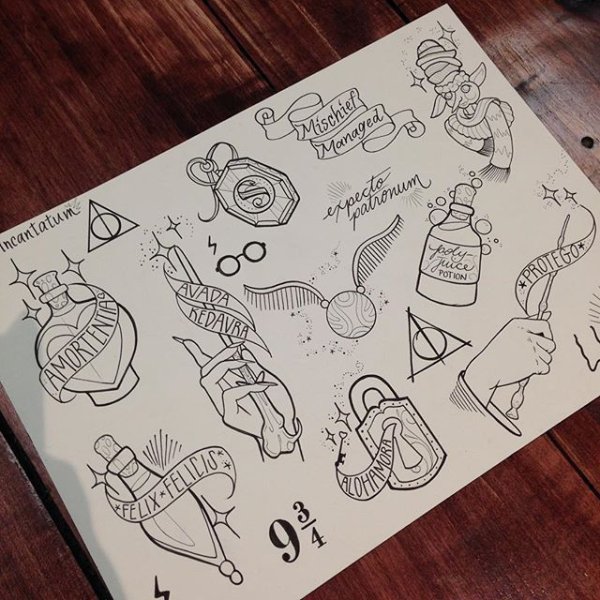 Mischief
Managed
expecto
patronum
Incantatum
poly
juice
POTION
PROTEGO
AVADA
KEDAVRA
AMORTENTIA
ALOHAMORA
FELIX FELICIS
9 3/4